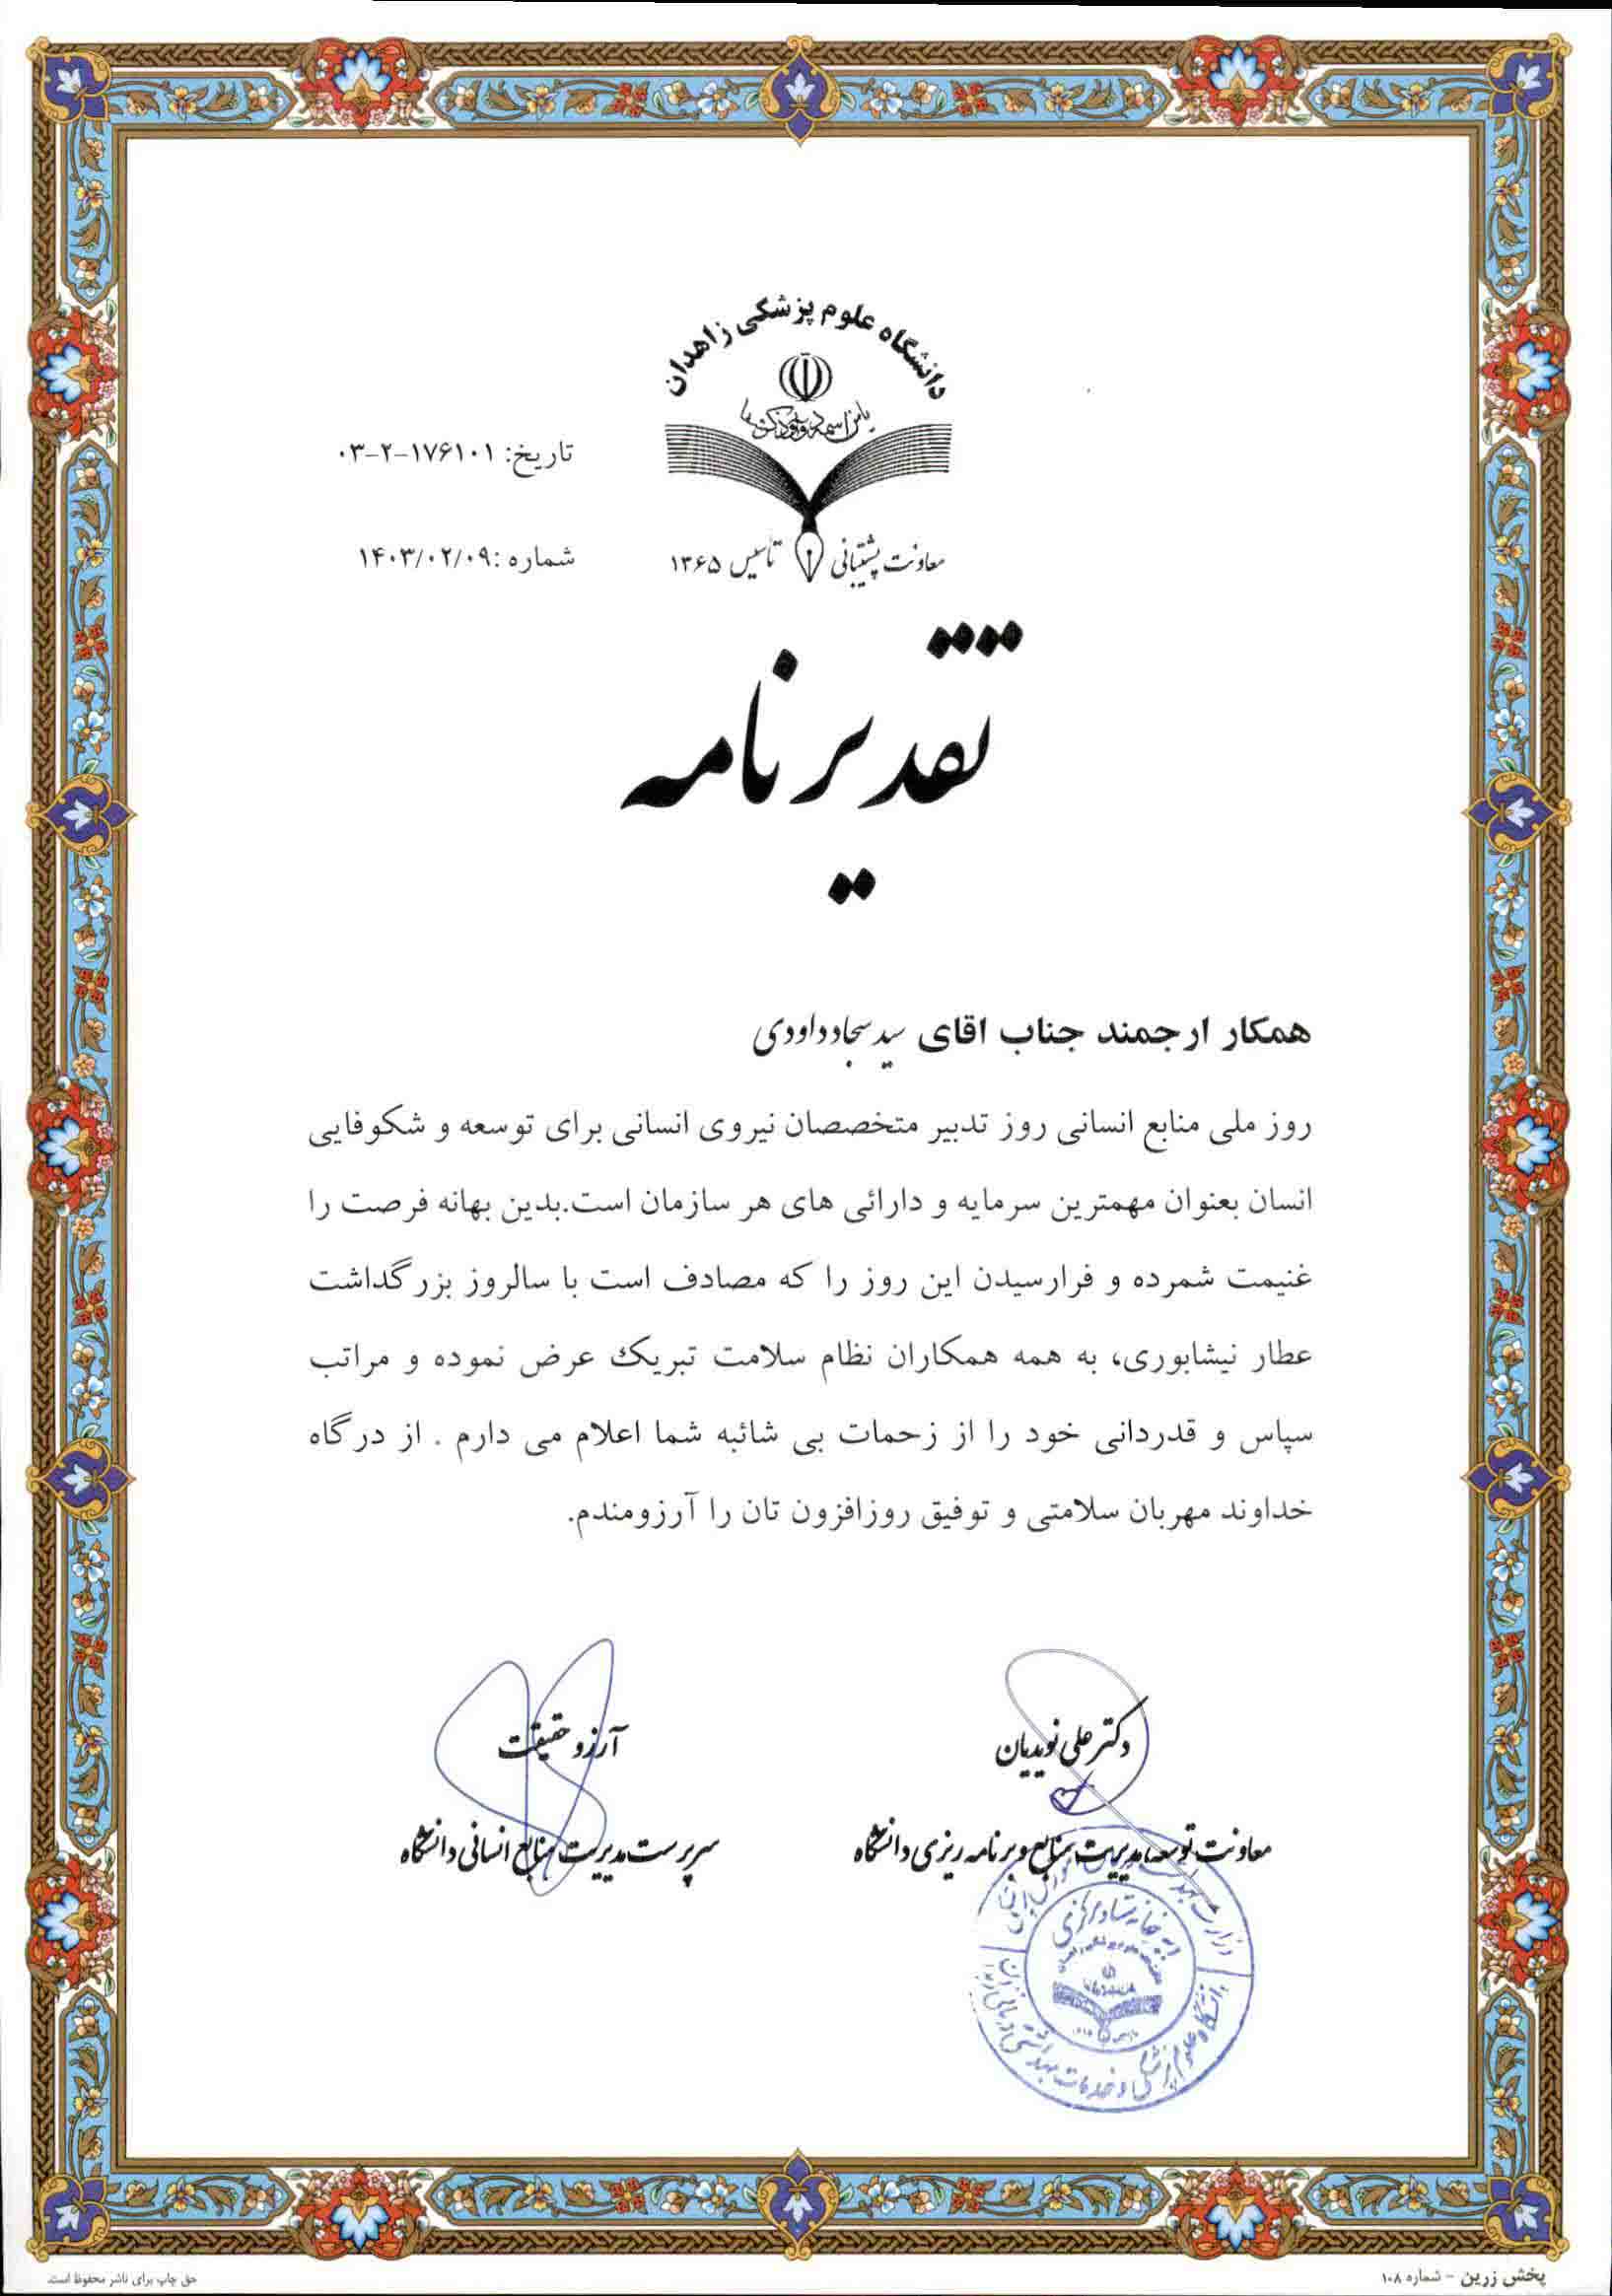 دانشگاه علوم پزشکی زاهدان
معاونت پشتیبانی تاسیس ۱۳۶۵
تاریخ: ۱۷۶۱۰۱-۲-۰۳
شماره :۱۴۰۳/۰۲/۰۹
تقدیرنامه
همکار ارجمند جناب اقای سید سجاد داودی
روز ملی منابع انسانی روز تدبیر متخصصان نیروی انسانی برای توسعه و شکوفایی
انسان بعنوان مهمترین سرمایه و دارائی های هر سازمان است.بدین بهانه فرصت را
غنیمت شمرده و فرارسیدن این روز را که مصادف است با سالروز بزرگداشت
عطار نیشابوری، به همه همکاران نظام سلامت تبریک عرض نموده و مراتب
سپاس و قدردانی خود را از زحمات بی شائبه شما اعلام می دارم . از درگاه
خداوند مهربان سلامتی و توفیق روزافزون تان را آرزومندم.
دکتر علی نویدیان
معاونت توسعه مدیریت منابع و برنامه ریزی دانشگاه
آرزو حقیقت
سرپرست مدیریت منابع انسانی دانشگاه
دبیرخانه ستاد مرکزی
پخش زرین - شماره ۱۰۸
حق چاپ برای ناشر محفوظ است.